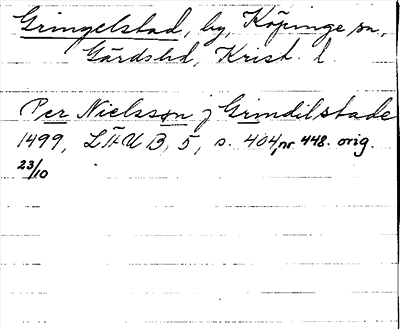 Gringelstad, by, Köpinge sn,
Gärds hd, Krist. l.
Per Nielsson j Grindilstade
1499, LÄU B, 5, s. 404, nr 448. orig.
23/10